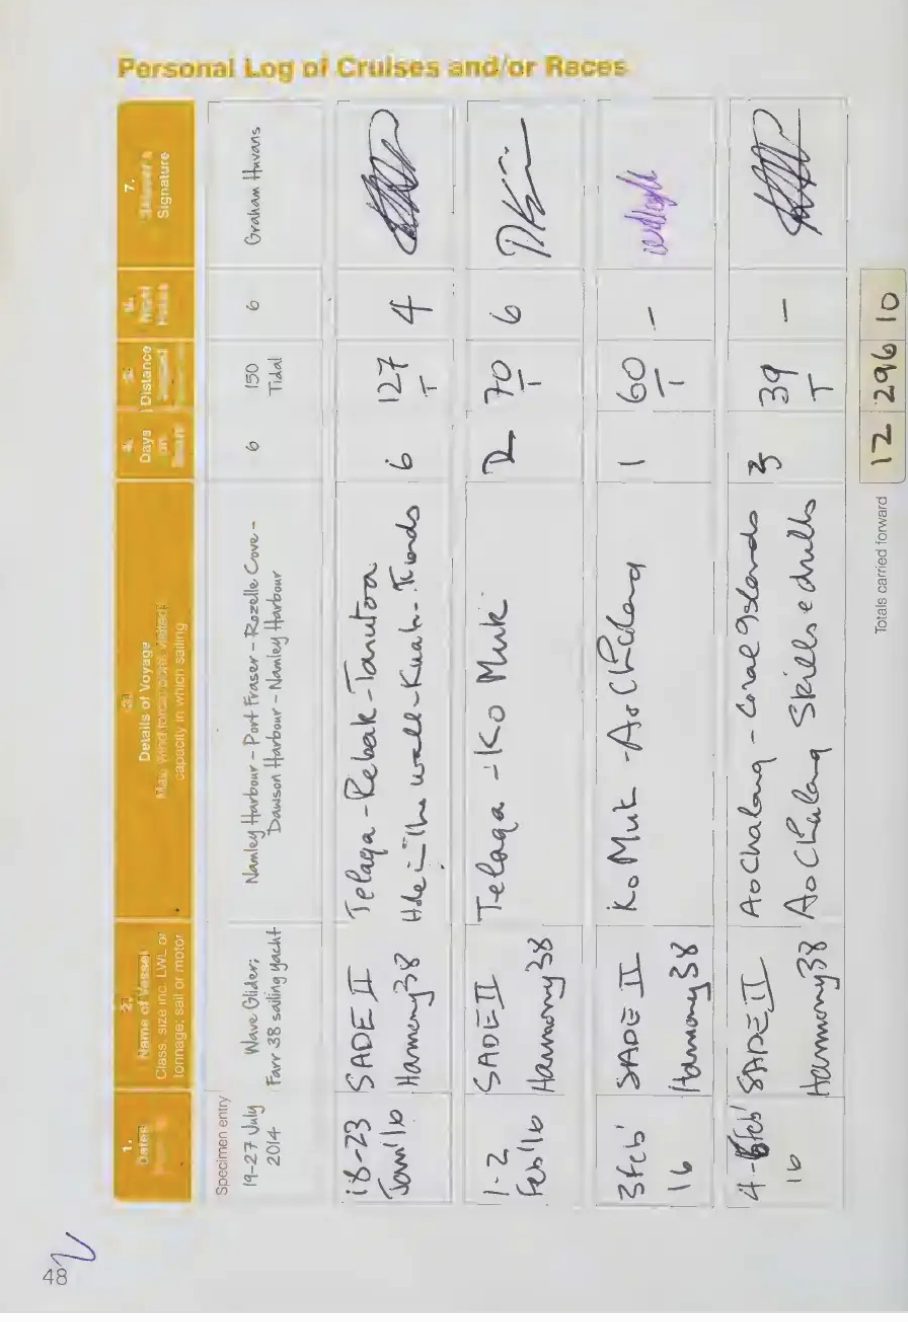 48
Personal Log of Cruises and/or Races
1.
Dates
2.
Name of Vessel
Class, size inc. LWL or
tonnage; sail or motor
3.
Details of Voyage
Max. wind force; ports visited;
capacity in which sailing
4.
Days
on
5.
Distance
6.
Night
Hours
7.
Signature
Specimen entry
19-27 July
2014
Wave Glider;
Farr 38 sailing yacht
Namley Harbour - Port Fraser - Rozelle Cove -
Dawson Harbour - Namley Harbour
6
150
Tidal
6
Graham Huvans
18-23
Jan'16
SADE II
Harmony 38
Telaga - Rebak - Tanutoa
Hole in the wall - Kuah -
6
127
T
4
1-2
Feb'16
SADE II
Harmony 38
Telaga - Ko Muk
2
70
T
6
3 Feb'
16
SADE II
Harmony 38
Ko Muk - Ao Chalong
1
60
T
-
4- Feb'
16
SADE II
Harmony 38
Ao Chalong - Coral Islands
Ao Chalong Skills & drills
3
39
T
-
Totals carried forward
12
296
10